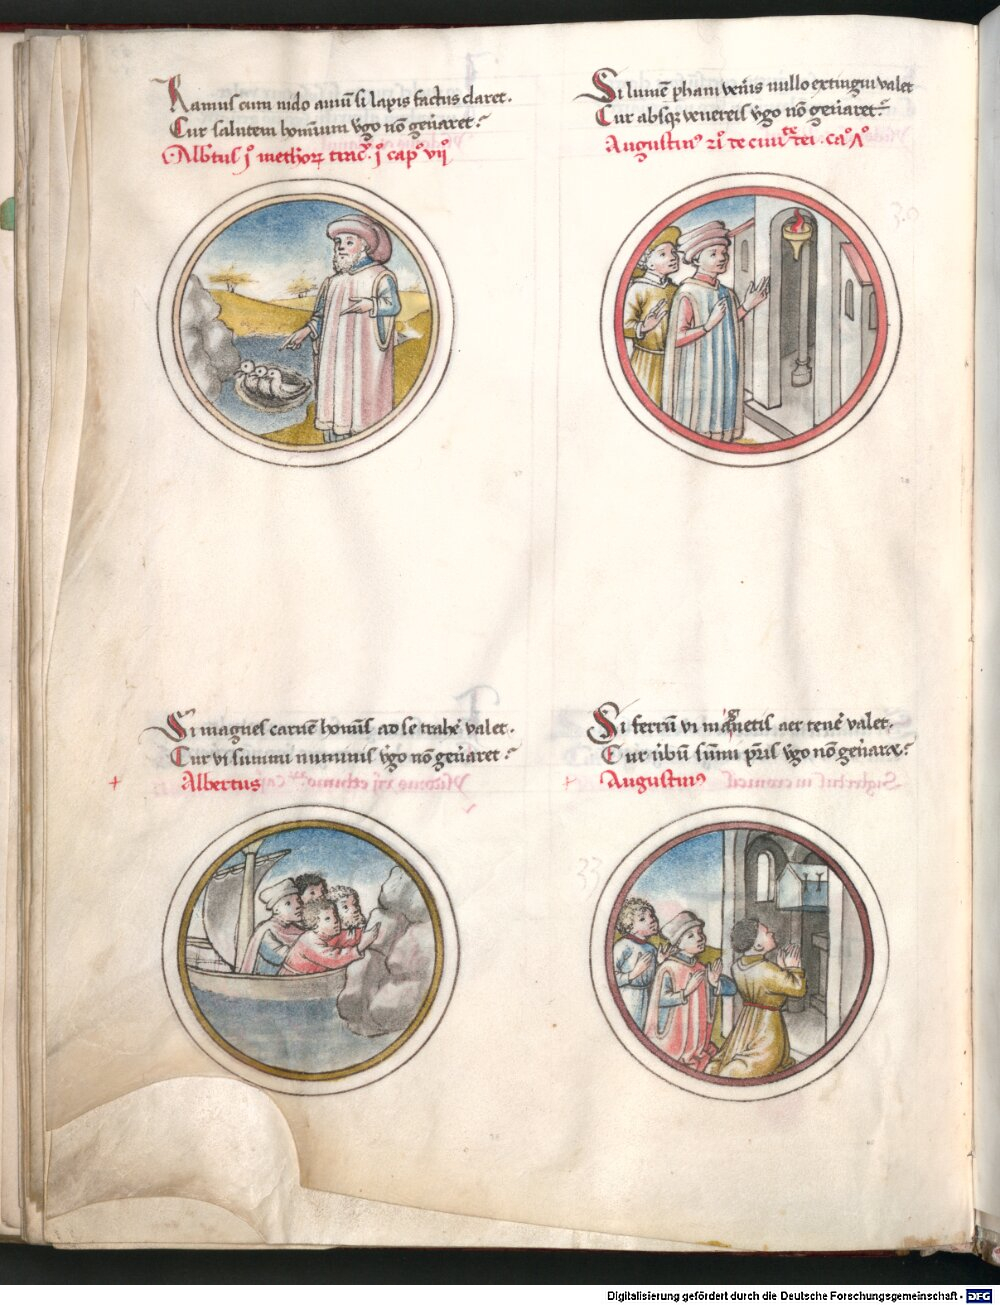 Ramus cum nido aviū si lapis factus claret.
Cur salutem hominum v̄go nō gen̄aret?
Alb̄tus j metheoꝝ trac. j cap° vij
Si lumē phani ven̄is nullo extingui valet
Cur absqꝫ venereis v̄go nō gen̄aret?
Augustinus de civi.te dei. ca°
Si magnes carnē hominis ad se trahe valet.
Cur vi summi numinis v̄go nō gen̄aret?
Albertus
Si ferrū vi magnetis aer tenē valet.
Cur v̄bū sūmi pr̄is v̄go nō gen̄aret?
Augustinus
30
33
Digitalisierung gefördert durch die Deutsche Forschungsgemeinschaft - DFG